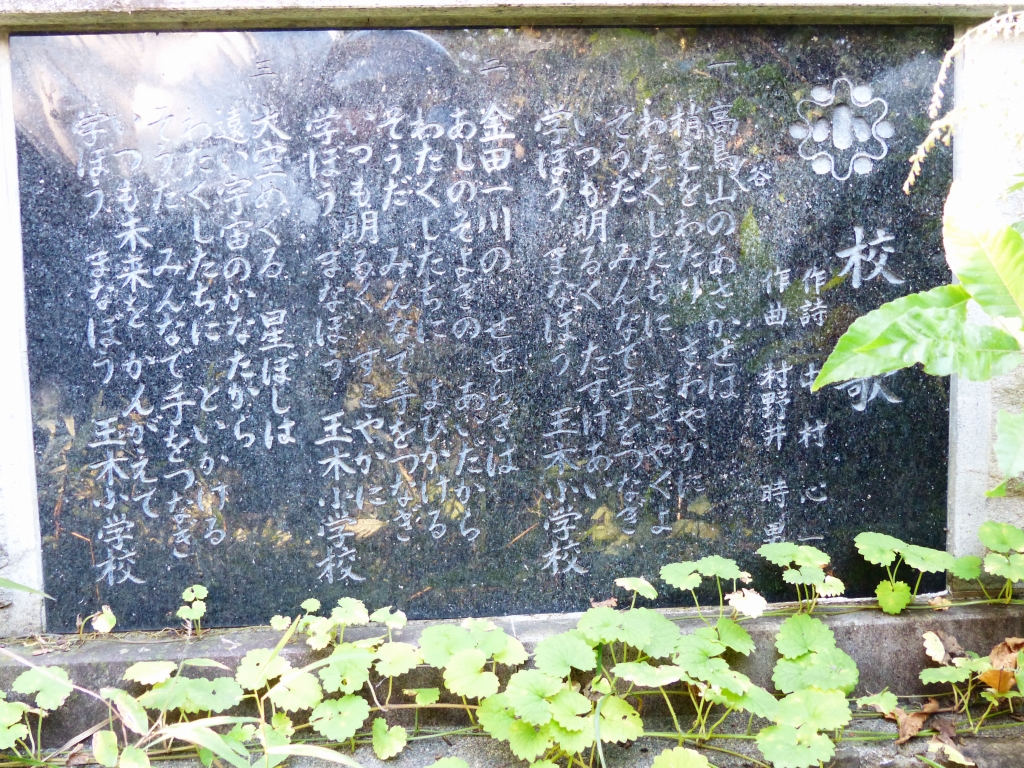 校歌
作詩 村 心一
作曲 村野井 時男
一
高鳥谷山のあさかぜは
梢をわたりさわやかに
わたくしたちに ささやくよ
そうだ みんなで手をつなぎ
いつも明るく たすけあい
学ぼう まなぼう 玉木小学校
二
金田一川の せせらぎは
あしのそよぎの あいだから
わたくしたちに よびかける
そうだ みんなで手をつなぎ
いつも明るく すこやかに
学ぼう まなぼう 玉木小学校
三
大空めぐる 星ぼしは
遠い宇宙のかなたから
わたくしたちに といかける
そうだ みんなで手をつなぎ
いつも未来を かんがえて
学ぼう まなぼう 玉木小学校